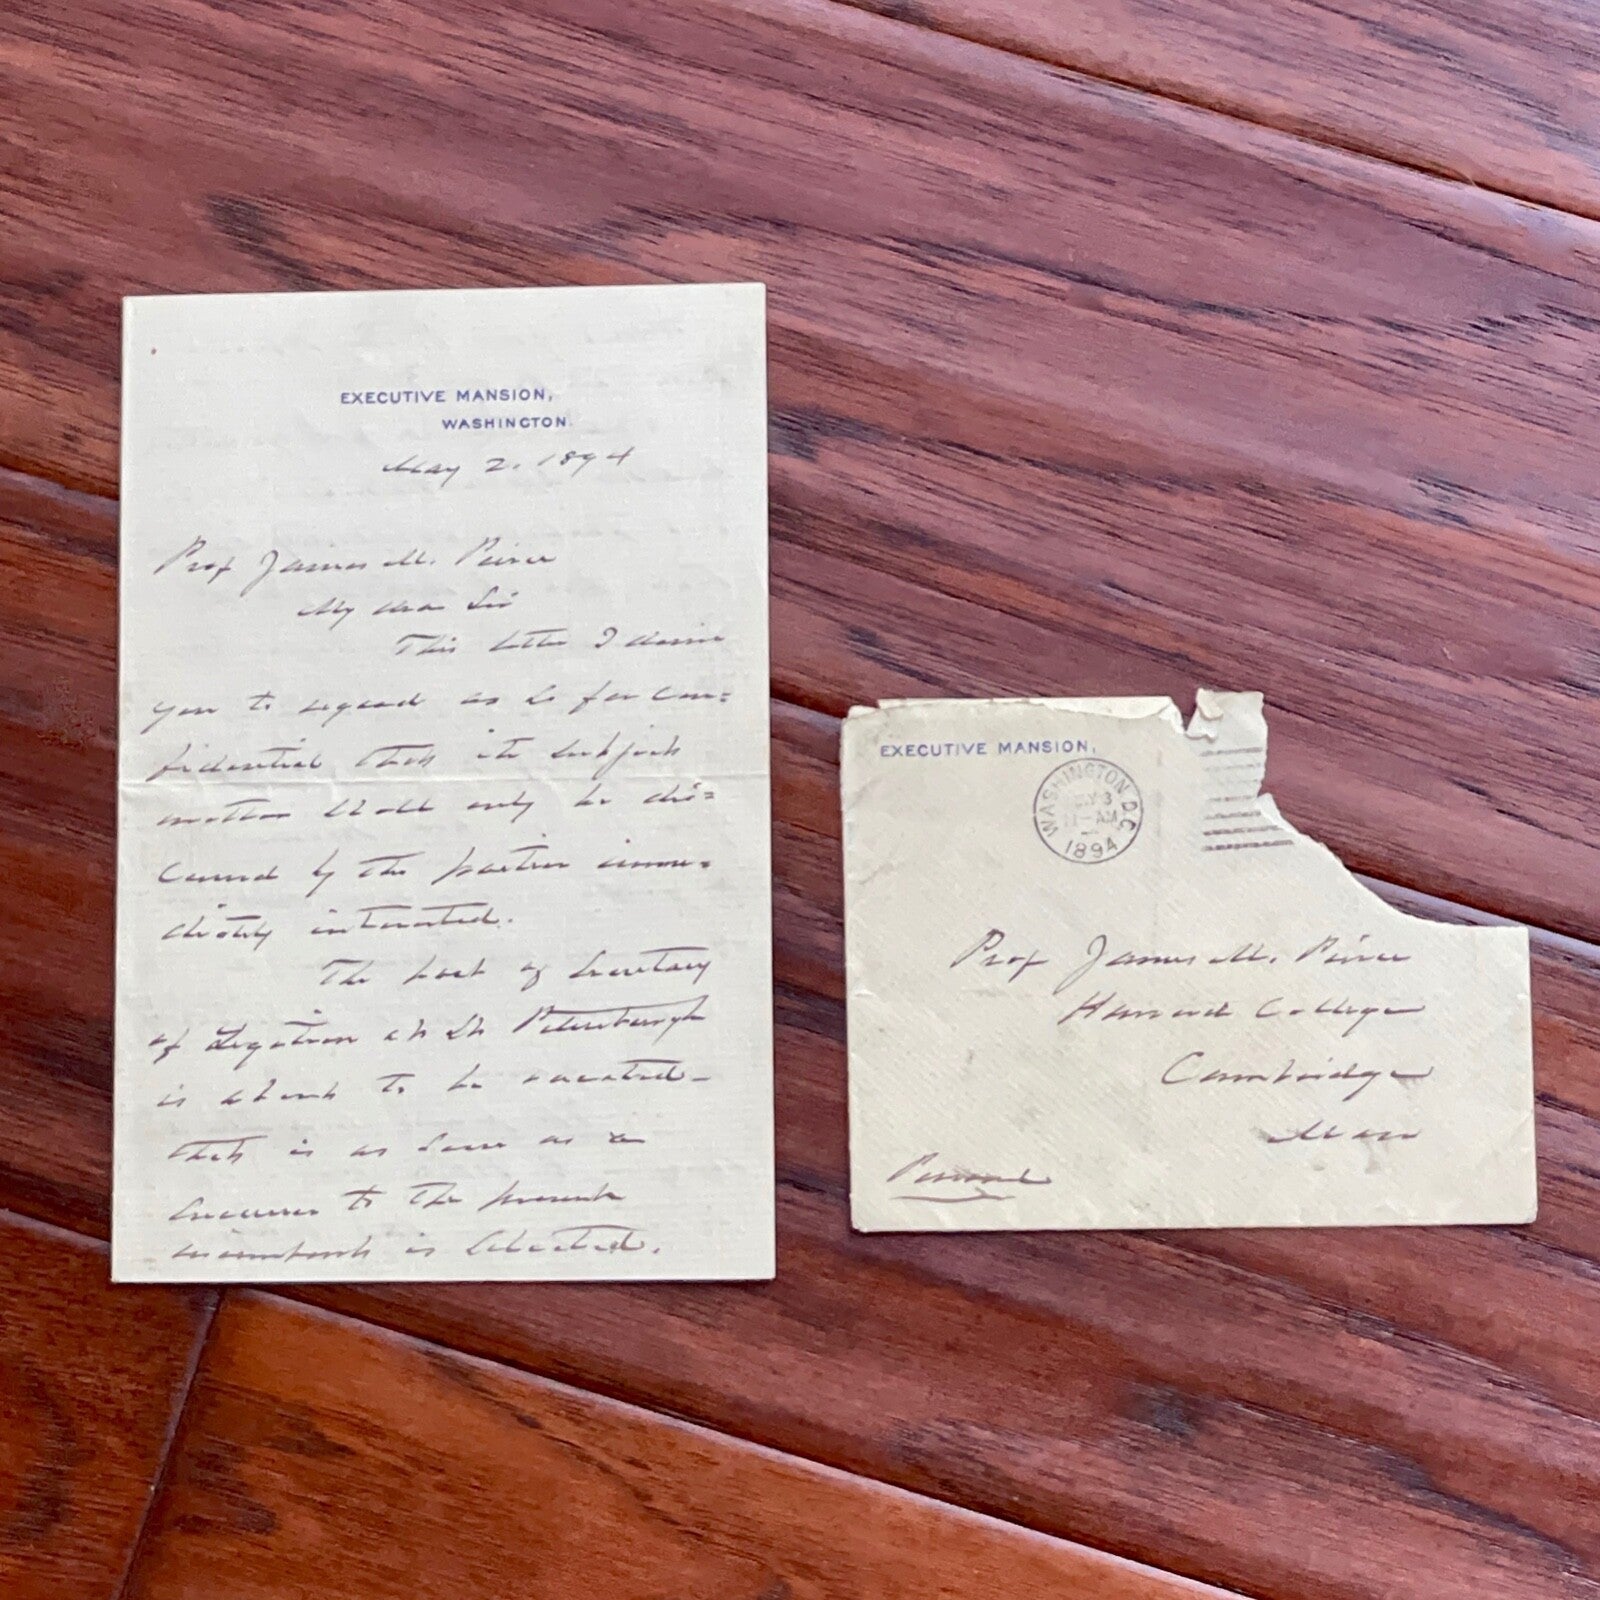 EXECUTIVE MANSION,
WASHINGTON.
May 2. 1894
Prof James M. Peirce
My dear Sir
This letter I desire
you to regard as so far con=
fidential that its subject
matter shall only be dis=
cussed by the parties imme=
diately interested.
The post of Secretary
of Legation at St Petersburgh
is about to be vacated—
that is as soon as a
successor to the present
incumbent is selected.
EXECUTIVE MANSION,
WASHINGTON, D.C.
MY 3
11-AM
1894
Prof James M. Peirce
Harvard College
Cambridge
Mass
Personal